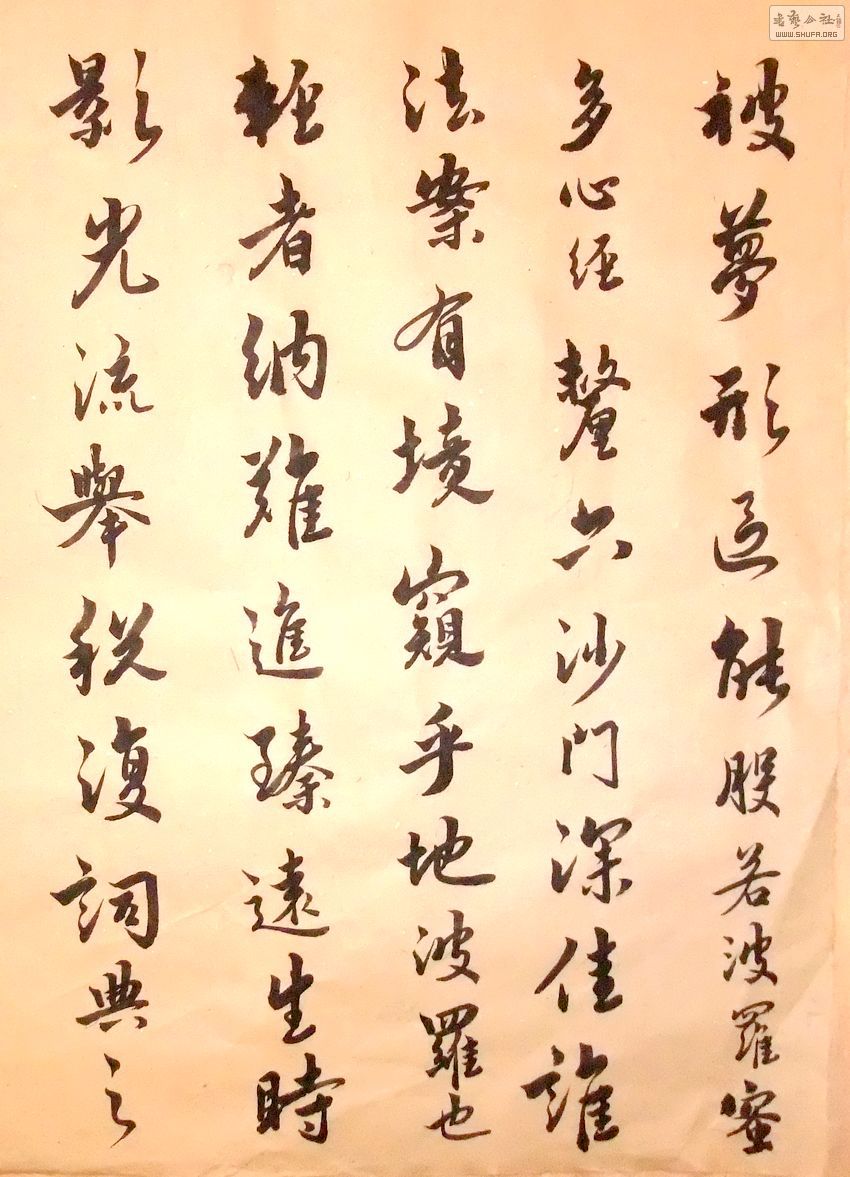 被夢形逕能般若波羅蜜
多心經整六沙門深佳誰
法案有境窺乎地波羅也
輕者納難進臻遠生時
影光流舉稅復詞典之
書藝公社
WWW.SHUFA.ORG